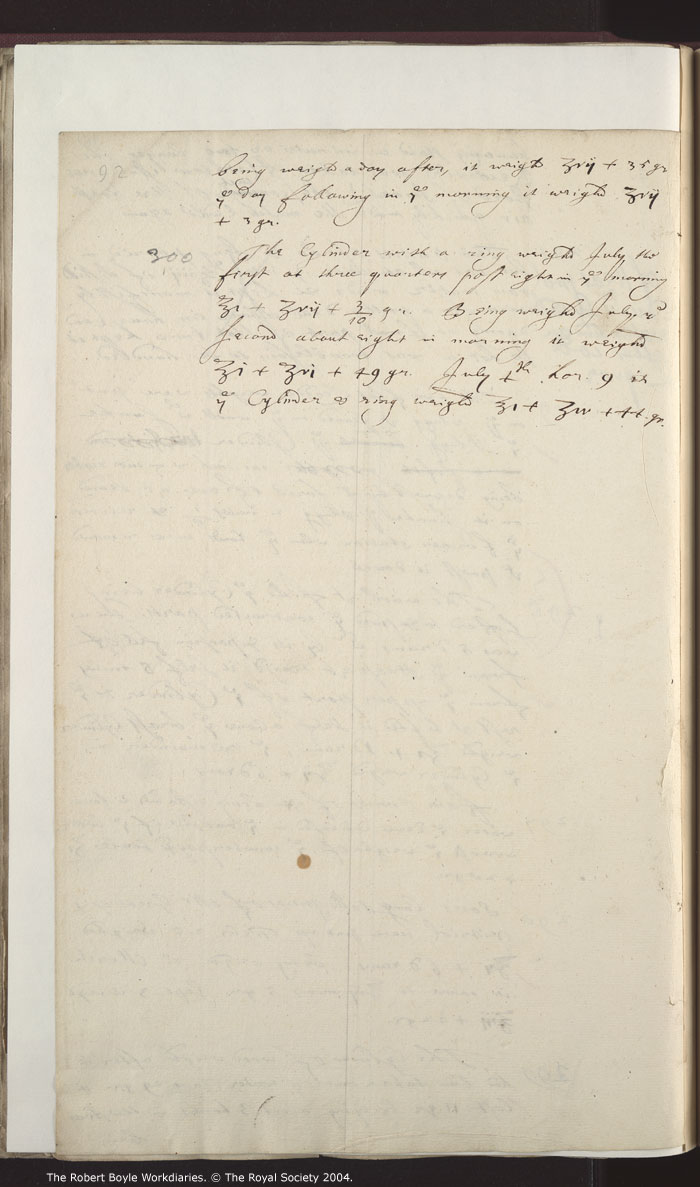 92
being weigh'd a day after, it weigh'd ʒvij + 35 gr
yᵉ day following in yᵉ morning it weigh'd ʒvij
+ 3 gr.
300 The Cylinder with a ring weigh'd July the
first at three quarters past eight in yᵉ morning
℥i + ʒvij + 3/10 gr. Being weigh'd July yᵉ
second about eight in morning it weigh'd
℥i + ʒvi + 49 gr. July hor. 9 
yᵉ Cylinder & ring weigh'd ℥i + + 44 gr.
The Robert Boyle Workdiaries. © The Royal Society 2004.